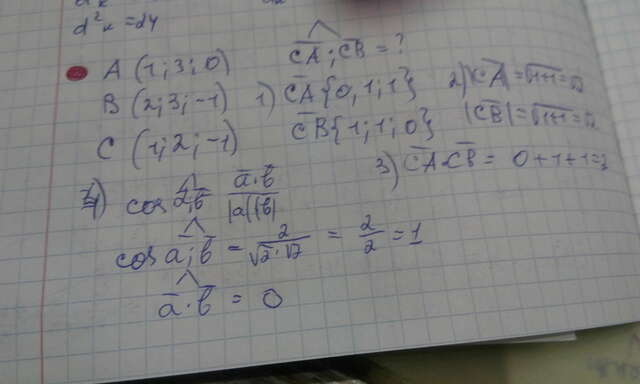 d²x = 24
A (1; 3; 0)
C͞A ; C͞B = ?
B (2; 3; -1)
1) C͞A {0, 1, 1}
2) |C͞A| = √1+1 = √2
C (1; 2; -1)
C͞B {1; 1; 0}
|C͞B| = √1+1 = √2
3) C͞A·C͞B = 0+1+1=2
4) cos a͞,b͞ = a͞·b͞ / |a||b|
cos a͞;b͞ = 2/√2·√2 = 2/2 = 1
a͞·b͞ = 0